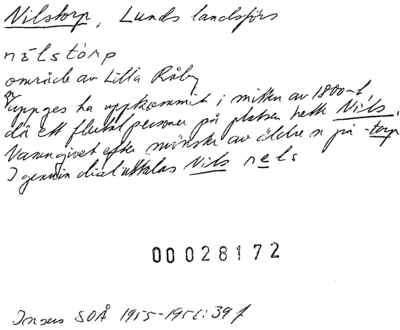 Nilstorp, Lunds landsförs
nèlstórp
område av Lilla Råby
uppges ha uppkommit i mitten av 1800-t,
då ett flertal personer på platsen hette Nils.
Namngivet efter mönster av äldre n på -torp
I genuin dial uttalas Nils nels
00028172
Ingers SOÅ 1955-1956:39 f